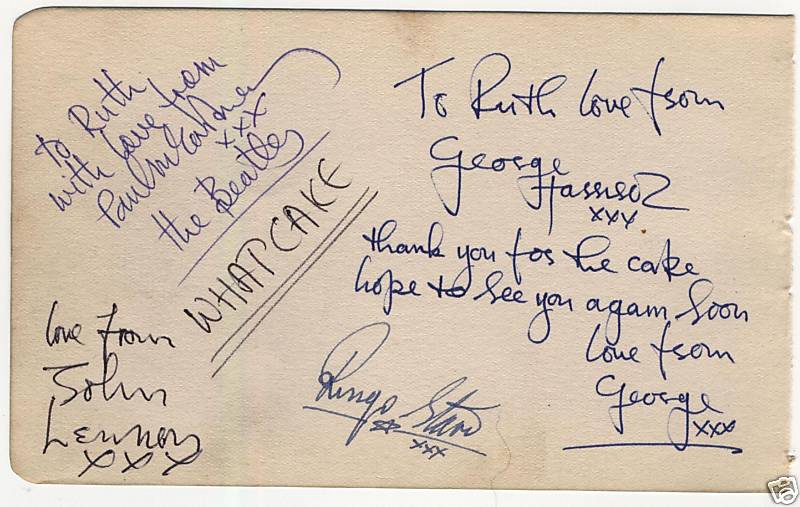 To Ruth
with love from
Paul McCartney
xxx
the Beatles
WHAT CAKE
love from
John
Lennon
xxx
To Ruth love from
George
Harrison
xxx
thank you for the cake
hope to see you again soon
love from
George
xxx
Ringo Starr
xxx